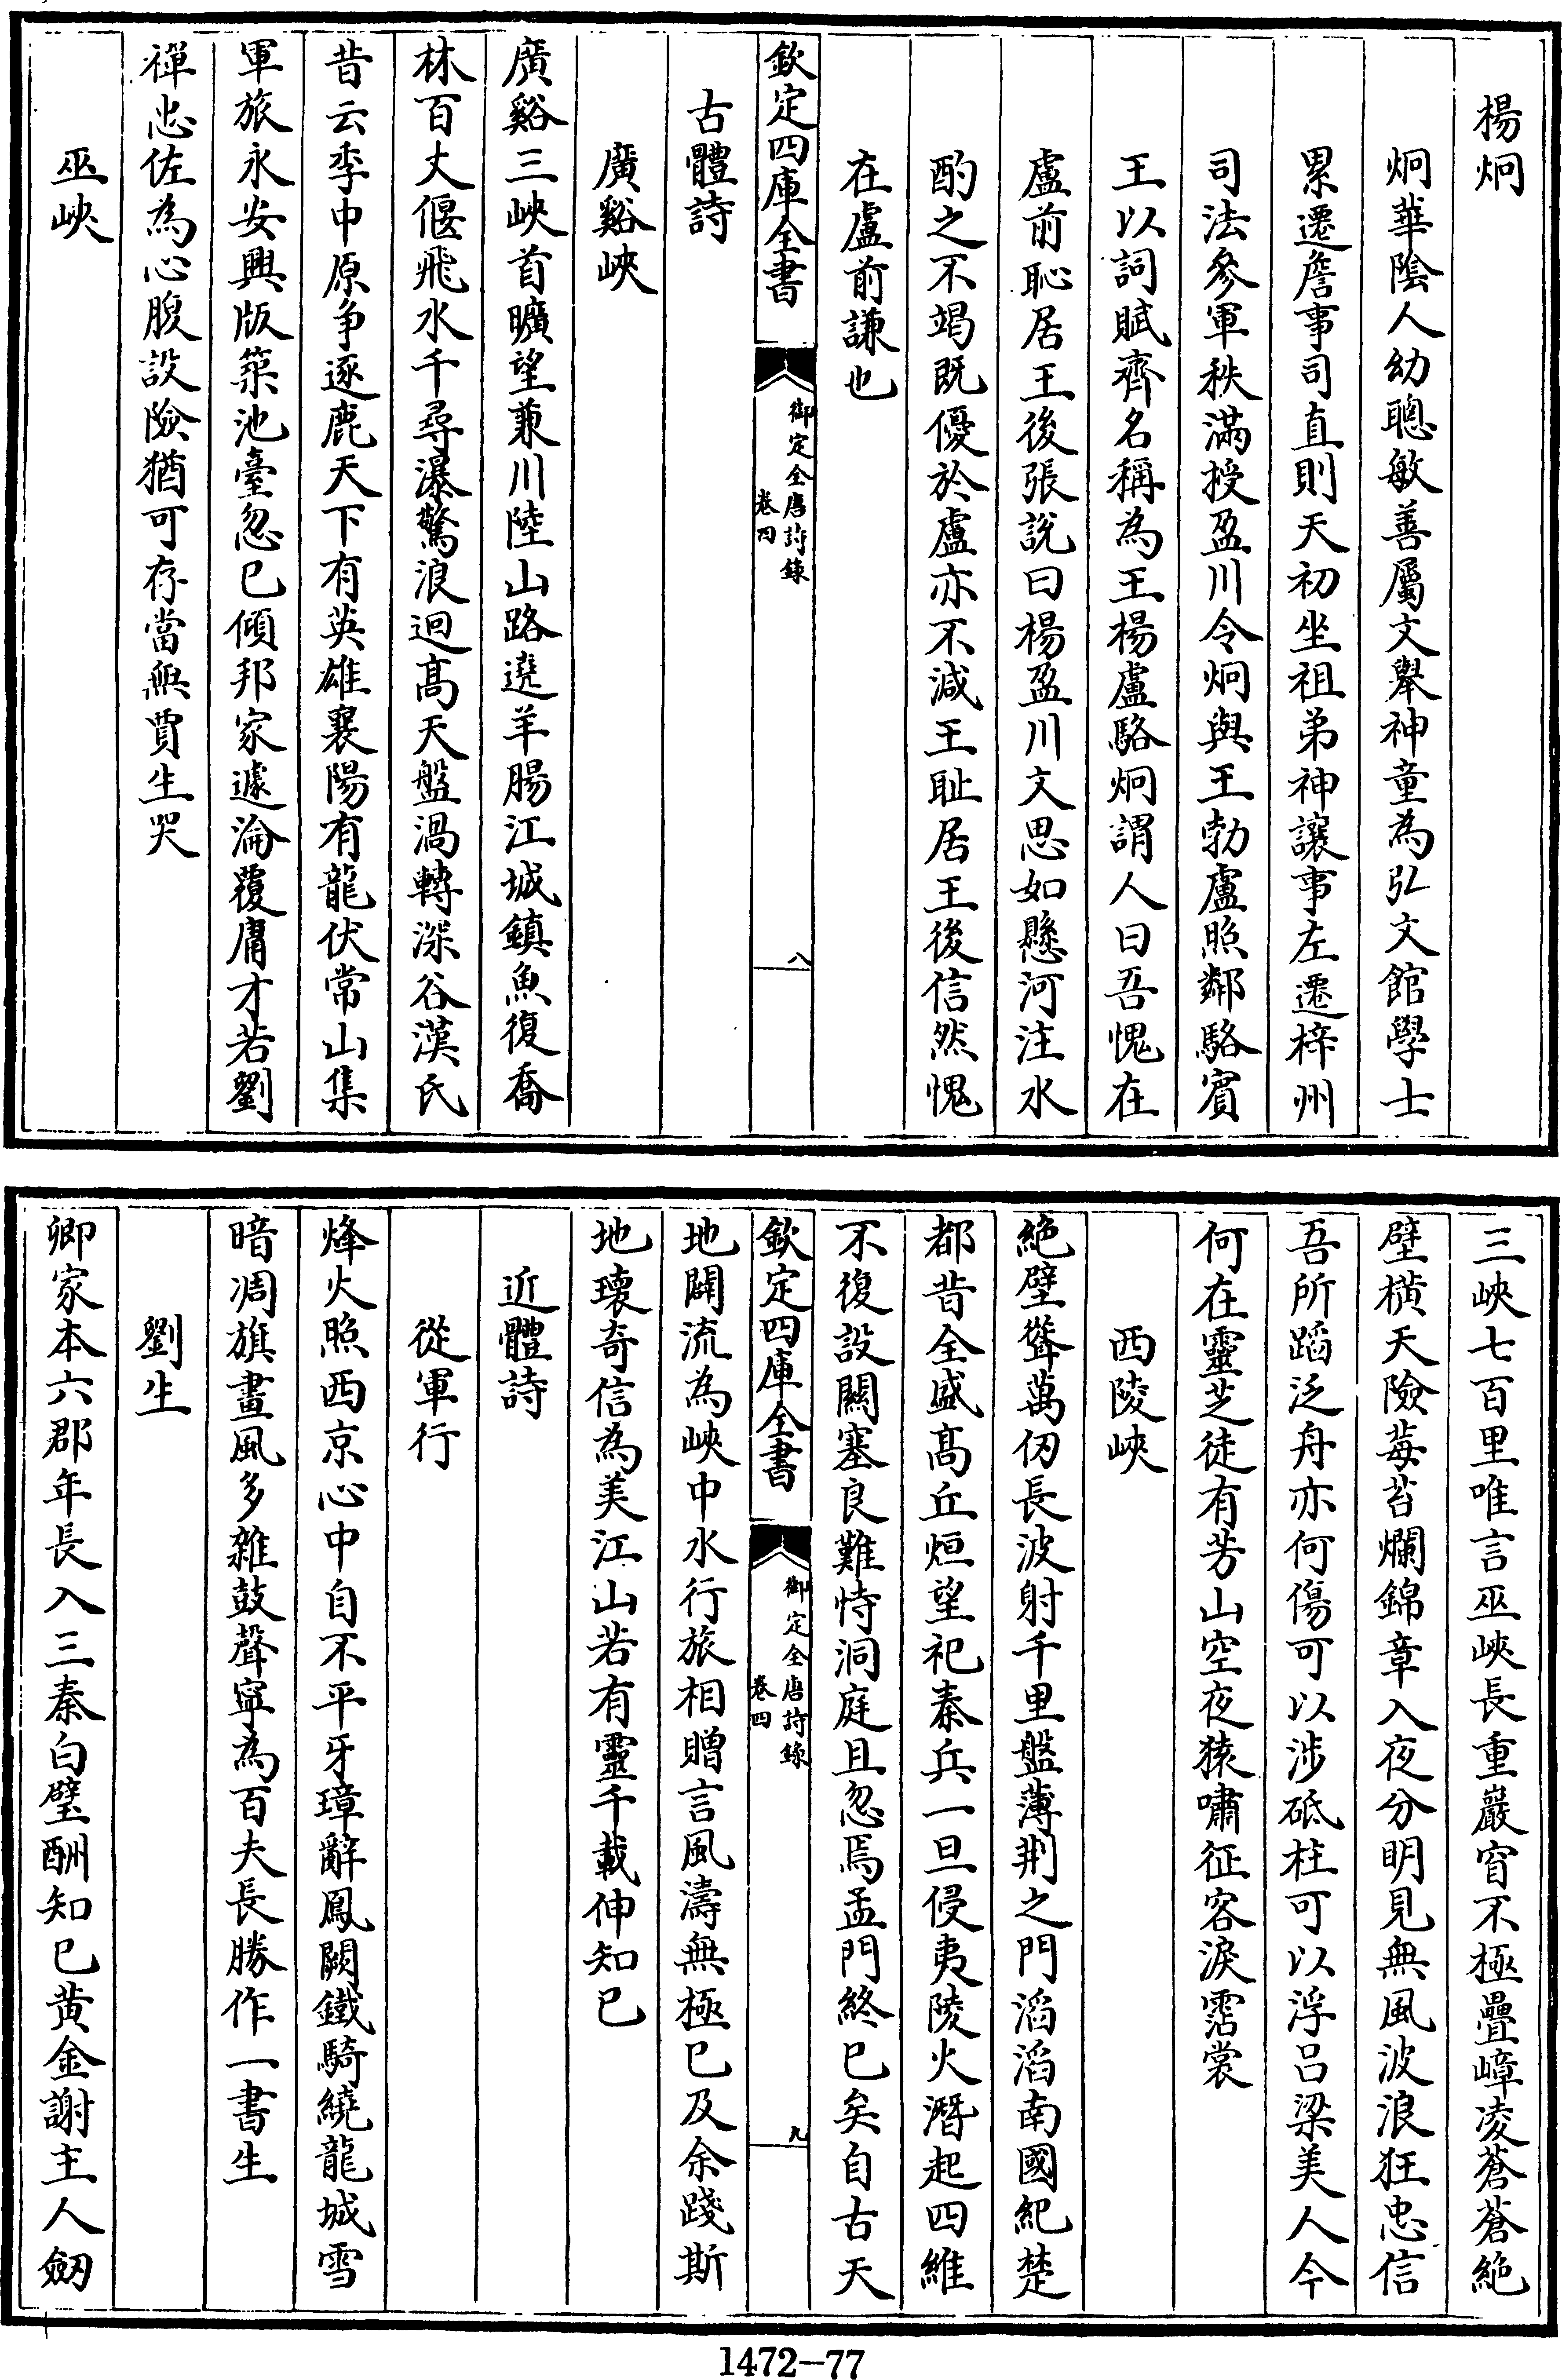 楊炯
炯華陰人幼聰敏善屬文舉神童為弘文館學士
累遷詹事司直則天初坐祖弟神讓事左遷梓州
司法參軍秩滿授盈川令炯與王勃盧照鄰駱賓
王以詞賦齊名稱為王楊盧駱炯謂人曰吾愧在
盧前恥居王後張說曰楊盈川文思如懸河注水
酌之不竭既優於盧亦不減王耻居王後信然愧
在盧前謙也
欽定四庫全書
御定全唐詩錄
卷四
八
古體詩
廣谿峽
廣谿三峽首曠望兼川陸山路遶羊腸江城鎮魚復喬
林百丈偃飛水千尋瀑驚浪迴高天盤渦轉深谷漢氏
昔云季中原爭逐鹿天下有英雄襄陽有龍伏常山集
軍旅永安興版築池臺忽已傾邦家遽淪覆庸才若劉
禪忠佐為心腹設險猶可存當無賈生哭
巫峽
三峽七百里唯言巫峽長重巖窅不極疊嶂凌蒼蒼絕
壁橫天險莓苔爛錦章入夜分明見無風波浪狂忠信
吾所蹈泛舟亦何傷可以涉砥柱可以浮呂梁美人今
何在靈芝徒有芳山空夜猿嘯征客淚霑裳
西陵峽
絕壁聳萬仞長波射千里盤薄荆之門滔滔南國紀楚
都昔全盛高丘烜望祀秦兵一旦侵夷陵火潛起四維
不復設關塞良難恃洞庭且忽焉孟門終已矣自古天
欽定四庫全書
御定全唐詩錄
卷四
九
地闢流為峽中水行旅相贈言風濤無極已及余踐斯
地瓌奇信為美江山若有靈千載伸知己
近體詩
從軍行
烽火照西京心中自不平牙璋辭鳳闕鐵騎繞龍城雪
暗凋旗畫風多雜鼓聲寧為百夫長勝作一書生
劉生
卿家本六郡年長入三秦白璧酬知己黃金謝主人劒
1472-77